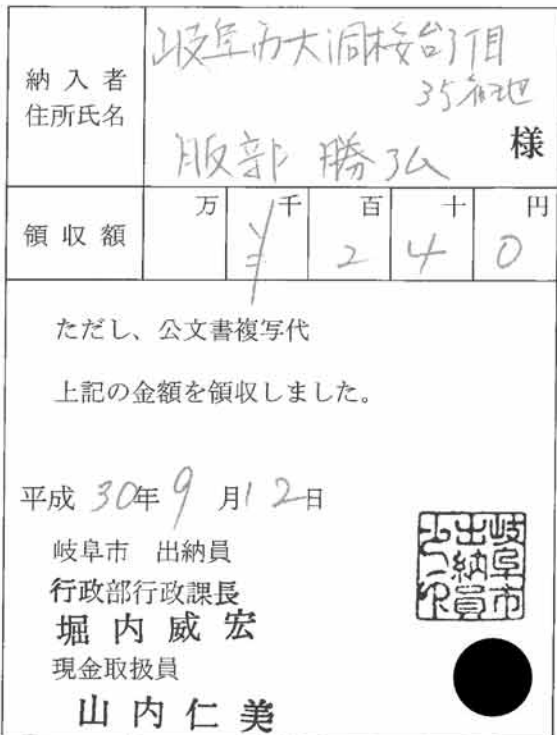 納入者
住所氏名
岐阜市大洞桜台3丁目
35番地
服部 勝弘
様
領収額
万 千 百 十 円
¥ 2 4 0
ただし、公文書複写代
上記の金額を領収しました。
平成 30年 9 月12日
岐阜市 出納員
行政部行政課長
堀内威宏
現金取扱員
山内仁美
岐阜市
出納員